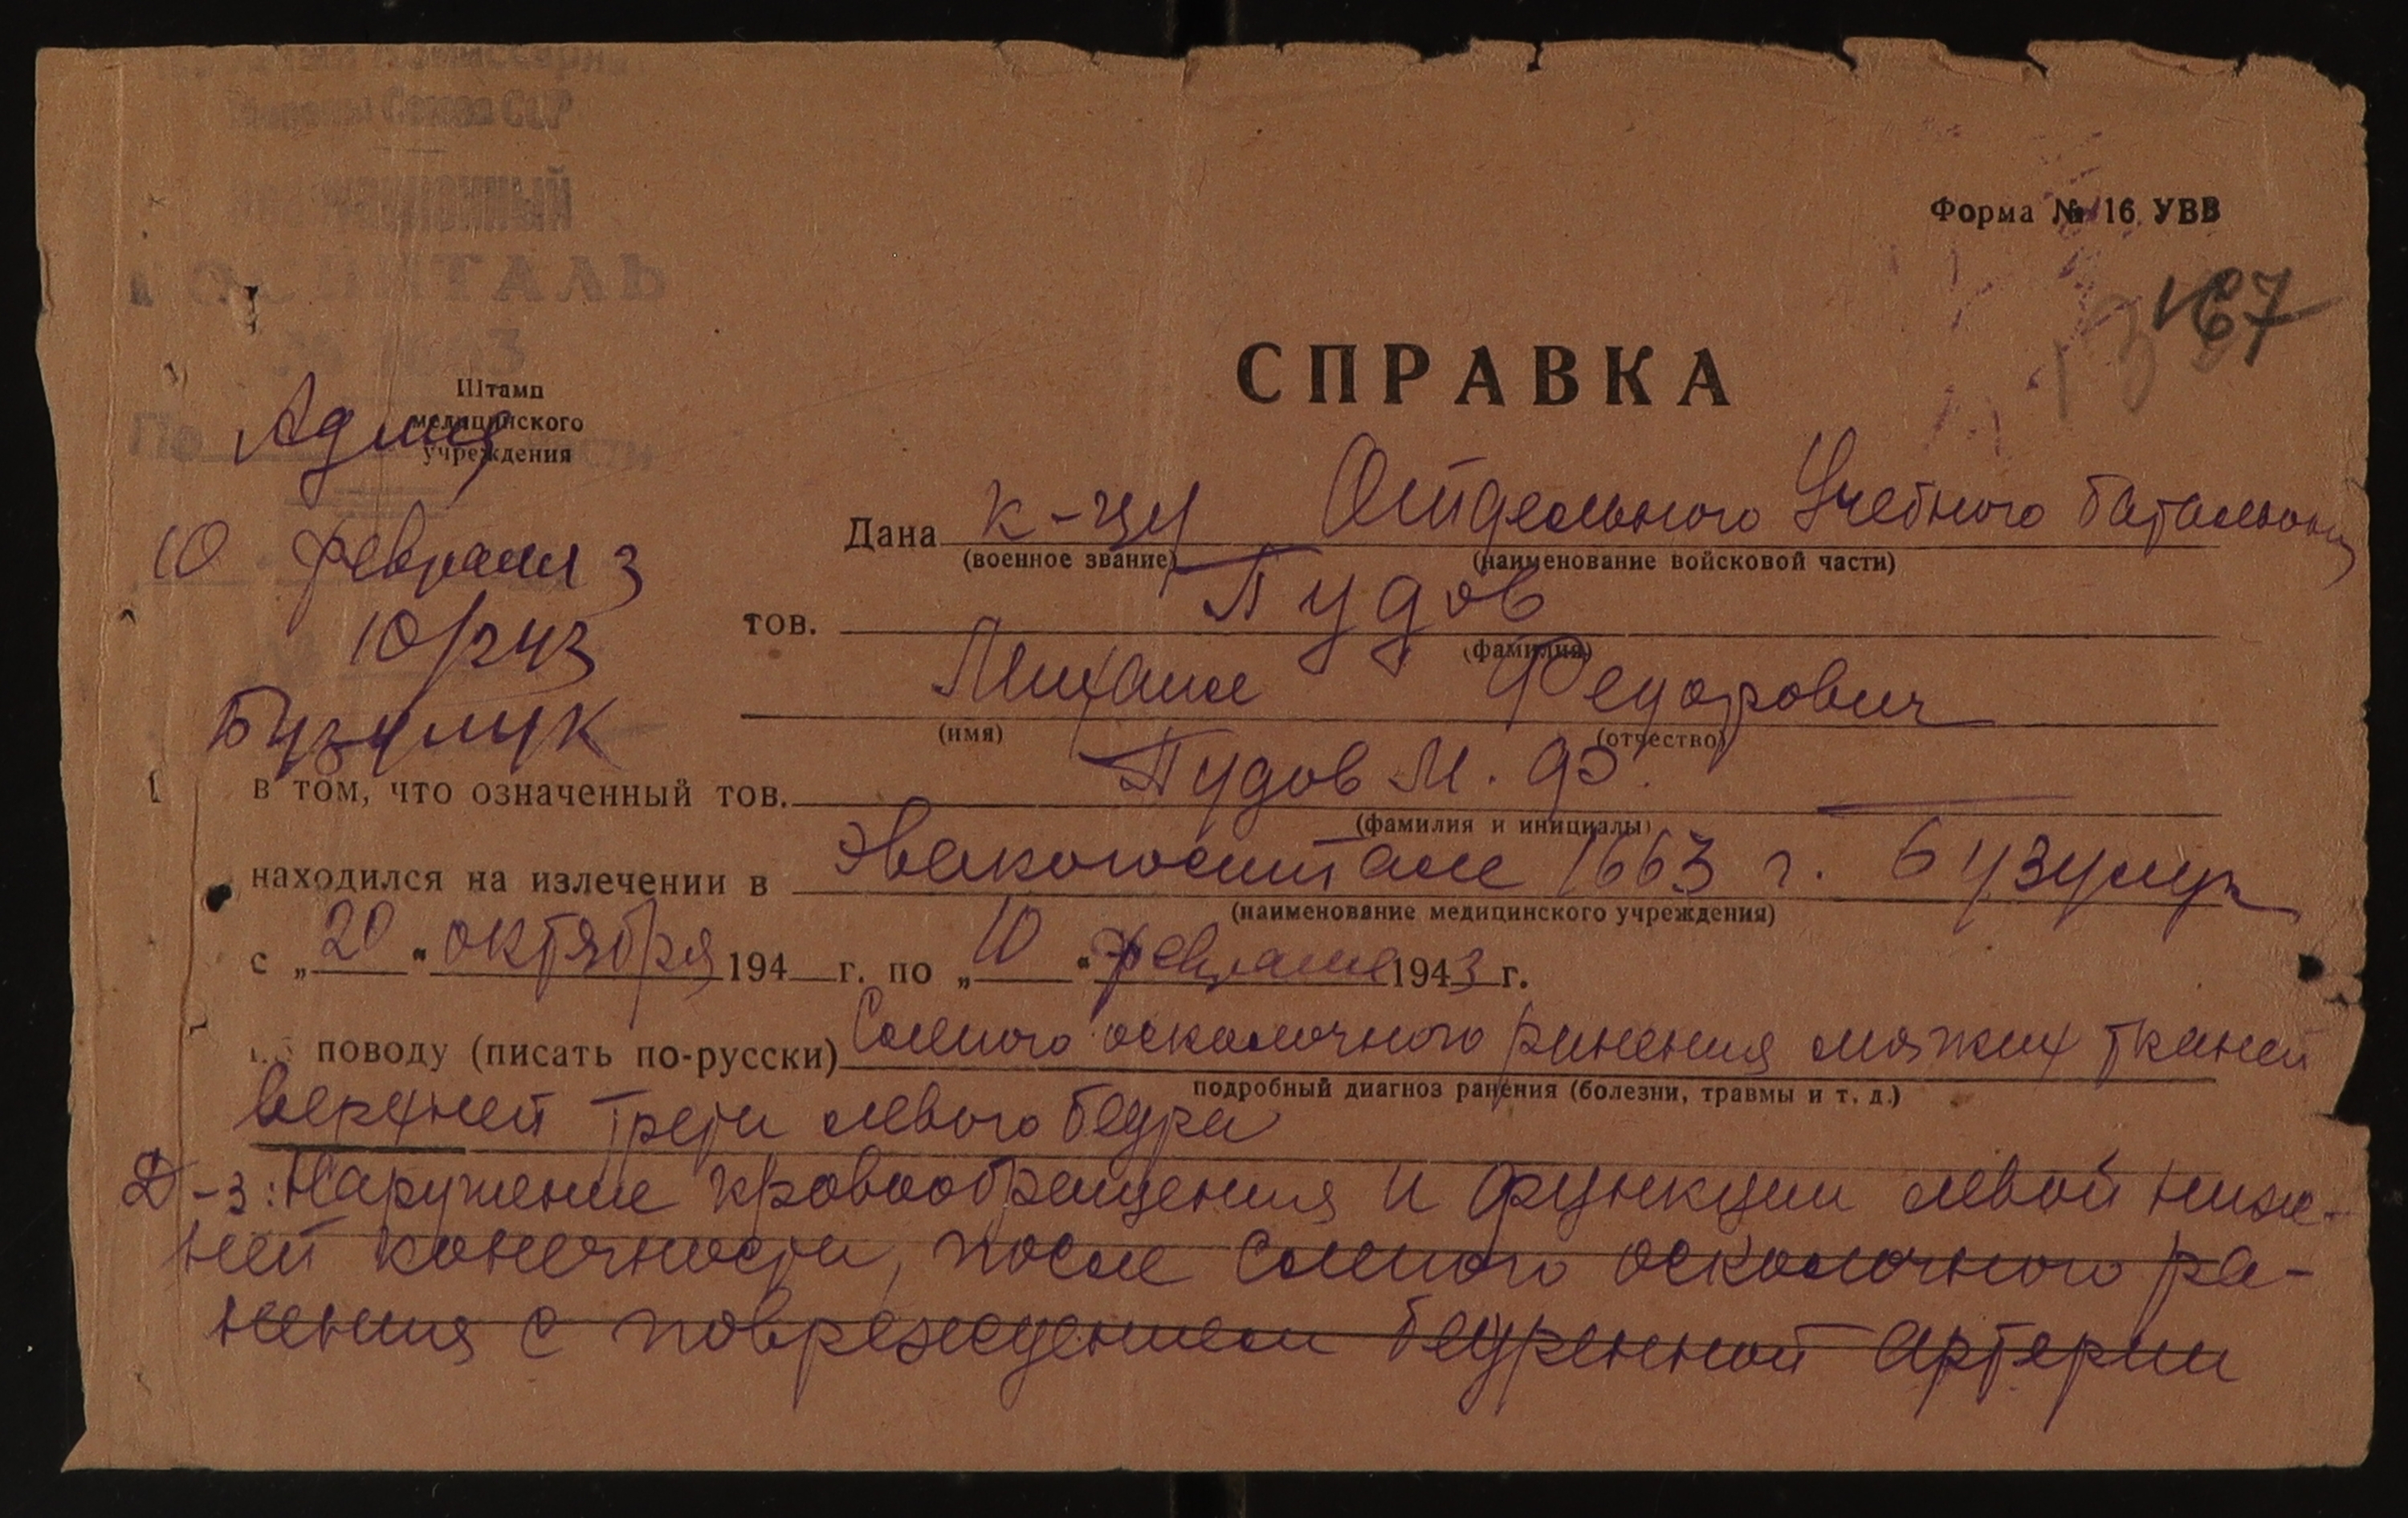 Союза ССР
ГОСПИТАЛЬ
Форма № 16 УВВ
67
СПРАВКА
Штамп
медицинского
учреждения
Дана к-цу Отдельного Учебного батальона
(военное звание) (наименование войсковой части)
10 февраля 3
тов. Пудов
(фамилия)
10/243
Михаил Федорович
(имя) (отчество)
Бузулук
в том, что означенный тов. Пудов М. Ф.
(фамилия и инициалы)
находился на излечении в Эвакогоспитале 1663 г. Бузулук
(наименование медицинского учреждения)
с „20“ октября 194 г. по „10“ февраля 1943 г.
поводу (писать по-русски) Слепого осколочного ранения мягких тканей
подробный диагноз ранения (болезни, травмы и т. д.)
верхней трети левого бедра
Д-з: Нарушение кровообращения и функции левой ниж-
ней конечности, после слепого осколочного ра-
нения с повреждением бедренной артерии